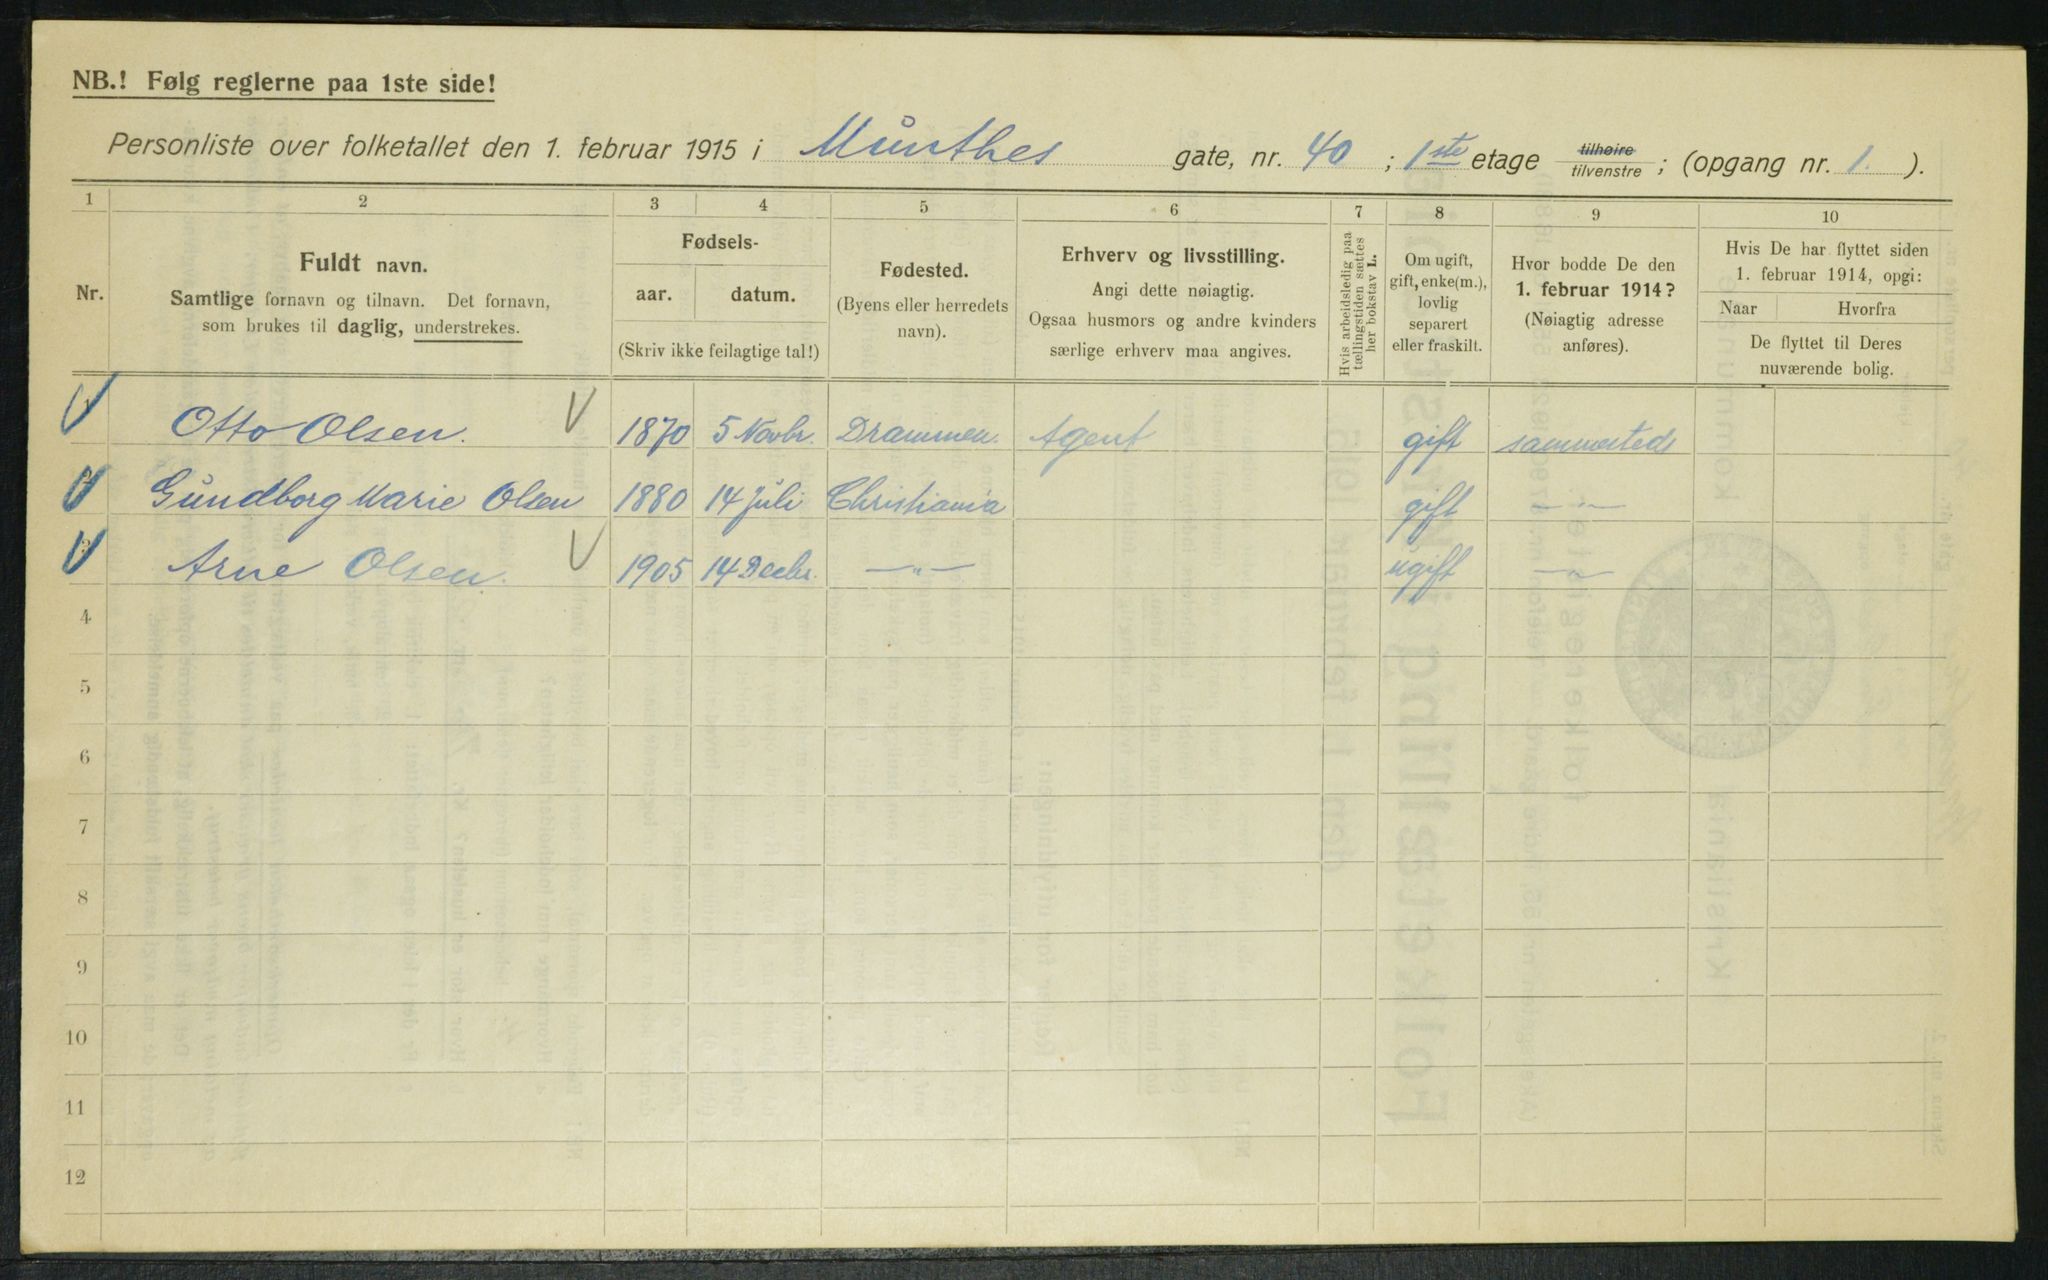 NB.! Følg reglerne paa 1ste side!
Personliste over folketallet den 1. februar 1915 i Munthes gate, nr. 40 ; 1ste etage tilhøire tilvenstre ; (opgang nr. 1. ).
1 2 3 4 5 6 7 8 9 10
Nr.
Fuldt navn.
Samtlige fornavn og tilnavn. Det fornavn,
som brukes til daglig, understrekes.
Fødsels-
aar. datum.
(Skriv ikke feilagtige tal!)
Fødested.
(Byens eller herredets
navn).
Erhverv og livsstilling.
Angi dette nøiagtig.
Ogsaa husmors og andre kvinders
særlige erhverv maa angives.
Hvis arbeidsledig paa
tællingstiden sættes
her bokstav L.
Om ugift,
gift, enke(m.),
lovlig
separert
eller fraskilt.
Hvor bodde De den
1. februar 1914?
(Nøiagtig adresse
anføres).
Hvis De har flyttet siden
1. februar 1914, opgi:
Naar Hvorfra
De flyttet til Deres
nuværende bolig.
1 Otto Olsen. 1870 5 Novbr. Drammen. Agent gift sammesteds
2 Gundborg Marie Olsen 1880 14 Juli Christiania gift —"—
3 Arne Olsen. 1905 14 Decbr. —"— ugift —"—
4
5
6
7
8
9
10
11
12